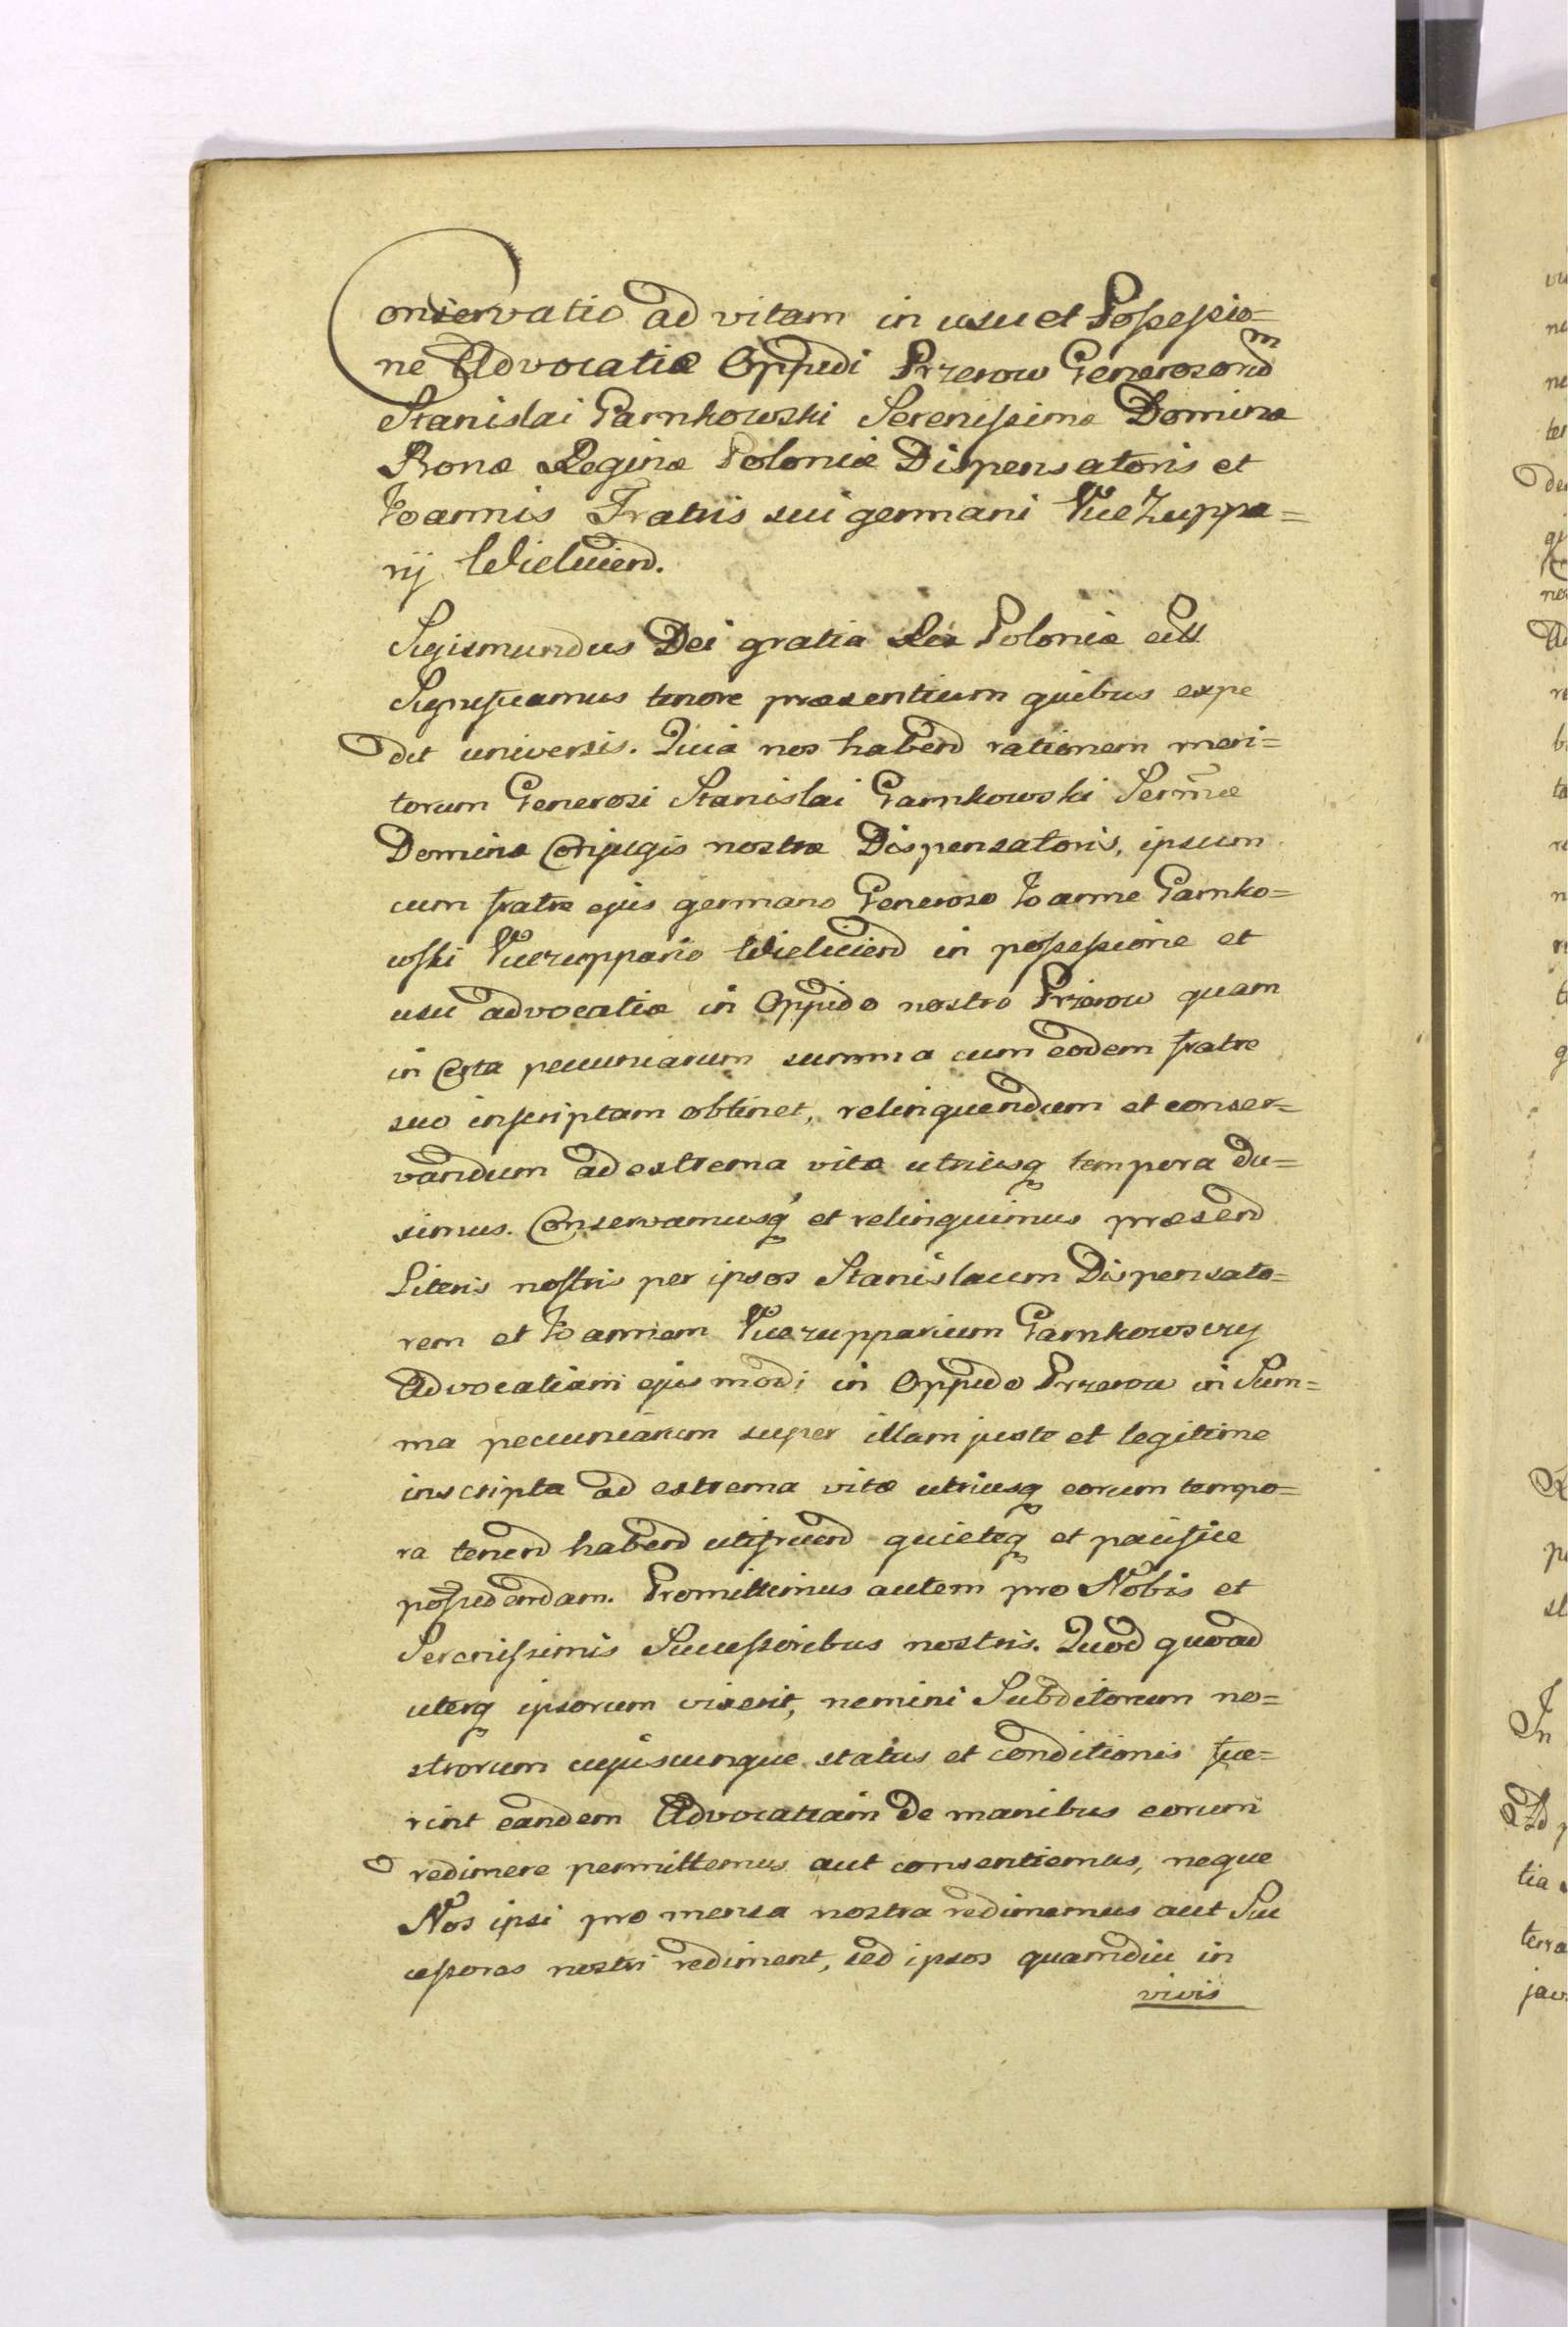 Conservatio ad vitam in usu et Possessio=
ne Advocatiæ Oppidi Przerow Generosorum
Stanislai Garnkowski Serenissimæ Dominæ
Bonæ Reginæ Poloniæ Dispensatoris et
Joannis Fratris sui germani Vice Zuppa=
rij Wielicien.
Sigismundus Dei gratia Rex Poloniæ etc
Significamus tenore præsentium quibus expe
dit universis. Quia nos haben rationem meri=
torum Generosi Stanislai Garnkowski Sermæ
Dominæ Conjugis nostræ Dispensatoris, ipsum
cum fratre ejus germano Generoso Joanne Garnko=
wski Vicezuppario Wielicien in possessione et
usu advocatiæ in Oppido nostro Przerow quam
in Certa pecuniarum summa cum eodem fratre
suo inscriptam obtinet, relinquendum et conser=
vandum ad extrema vitæ utriusq tempora du=
ximus. Conservamusq et relinquimus præsen
Literis nostris per ipsos Stanislaum Dispensato=
rem et Joannem Vicezupparium Garnkowscy
Advocatiam ejusmodi in Oppido Przerow in Sum=
ma pecuniarum super illam juste et legitime
inscripta ad extrema vitæ utriusq eorum tempo=
ra tenen haben utifruen quieteq et pacifice
possidendam. Promittimus autem pro Nobis et
Serenissimis Successoribus nostris. Quod quoad
uterq ipsorum vixerit, nemini Subditorum no=
strorum cujuscunque status et conditionis fue=
rint eandem Advocatiam de manibus eorum
redimere permittemus aut consentiemus, neque
Nos ipsi pro mensa nostra redimemus aut Suc
cessores nostri rediment, sed ipsos quamdiu in
vivis